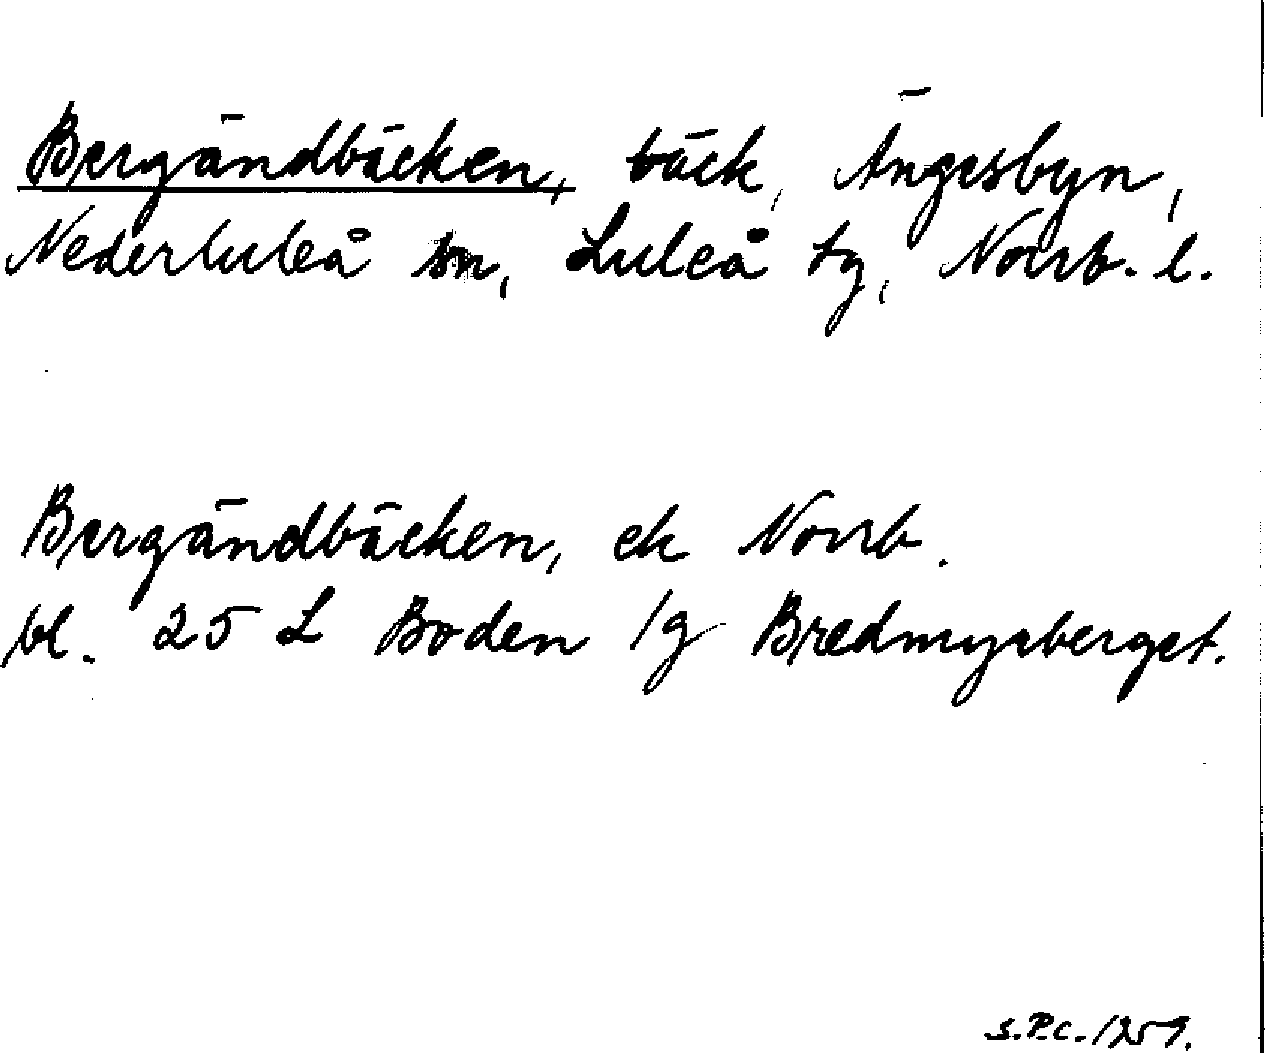 Bergändbäcken, bäck, Ängesbyn,
Nederluleå sn, Luleå tg, Norrb. l.
Bergändbäcken, ek Norrb.
bl. 25 L Boden 1g Bredmyrberget.
S.P.C. 1959.